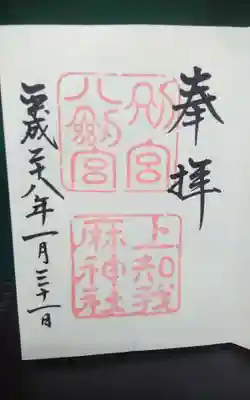 奉拝
別宮
八剣宮
上知我
麻神社
平成二十八年一月三十一日